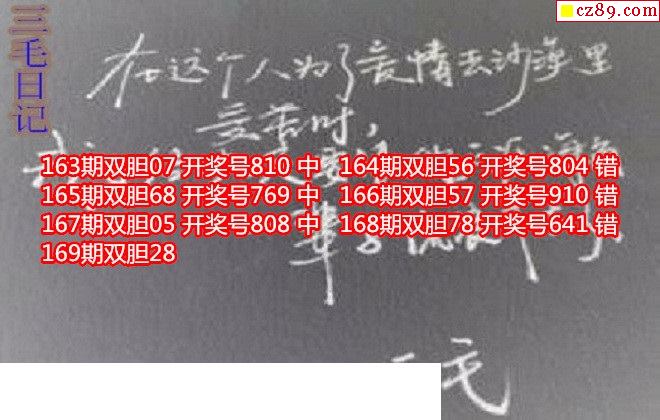 三毛日记
cz89.com
在这个人为了爱情去沙漠里
受苦时，
163期双胆07 开奖号810 中 164期双胆56 开奖号804 错
165期双胆68 开奖号769 中 166期双胆57 开奖号910 错
167期双胆05 开奖号808 中 168期双胆78 开奖号641 错
169期双胆28
三毛